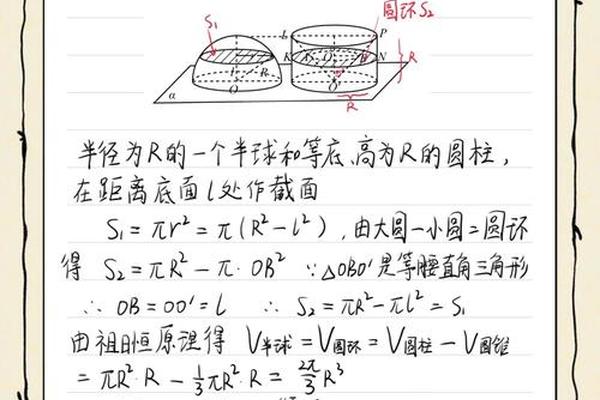 S₁
圆环S₂
L
P
K
N
R
R
O
O'
α
R
半径为R的一个半球和等底、高为R的圆柱,
在距离底面l处作截面
S₁=πr²=π(R²-l²),由大圆-小圆=圆环
得 S₂=πR²-π·OB² ∵△OBO'是等腰直角三角形
∴ OB=OO'=l ∴ S₂=πR²-πl²=S₁
由祖日恒原理得 V半球=V圆环=V圆柱-V圆锥
=πR²·R-⅓πR²·R=2π/3R³